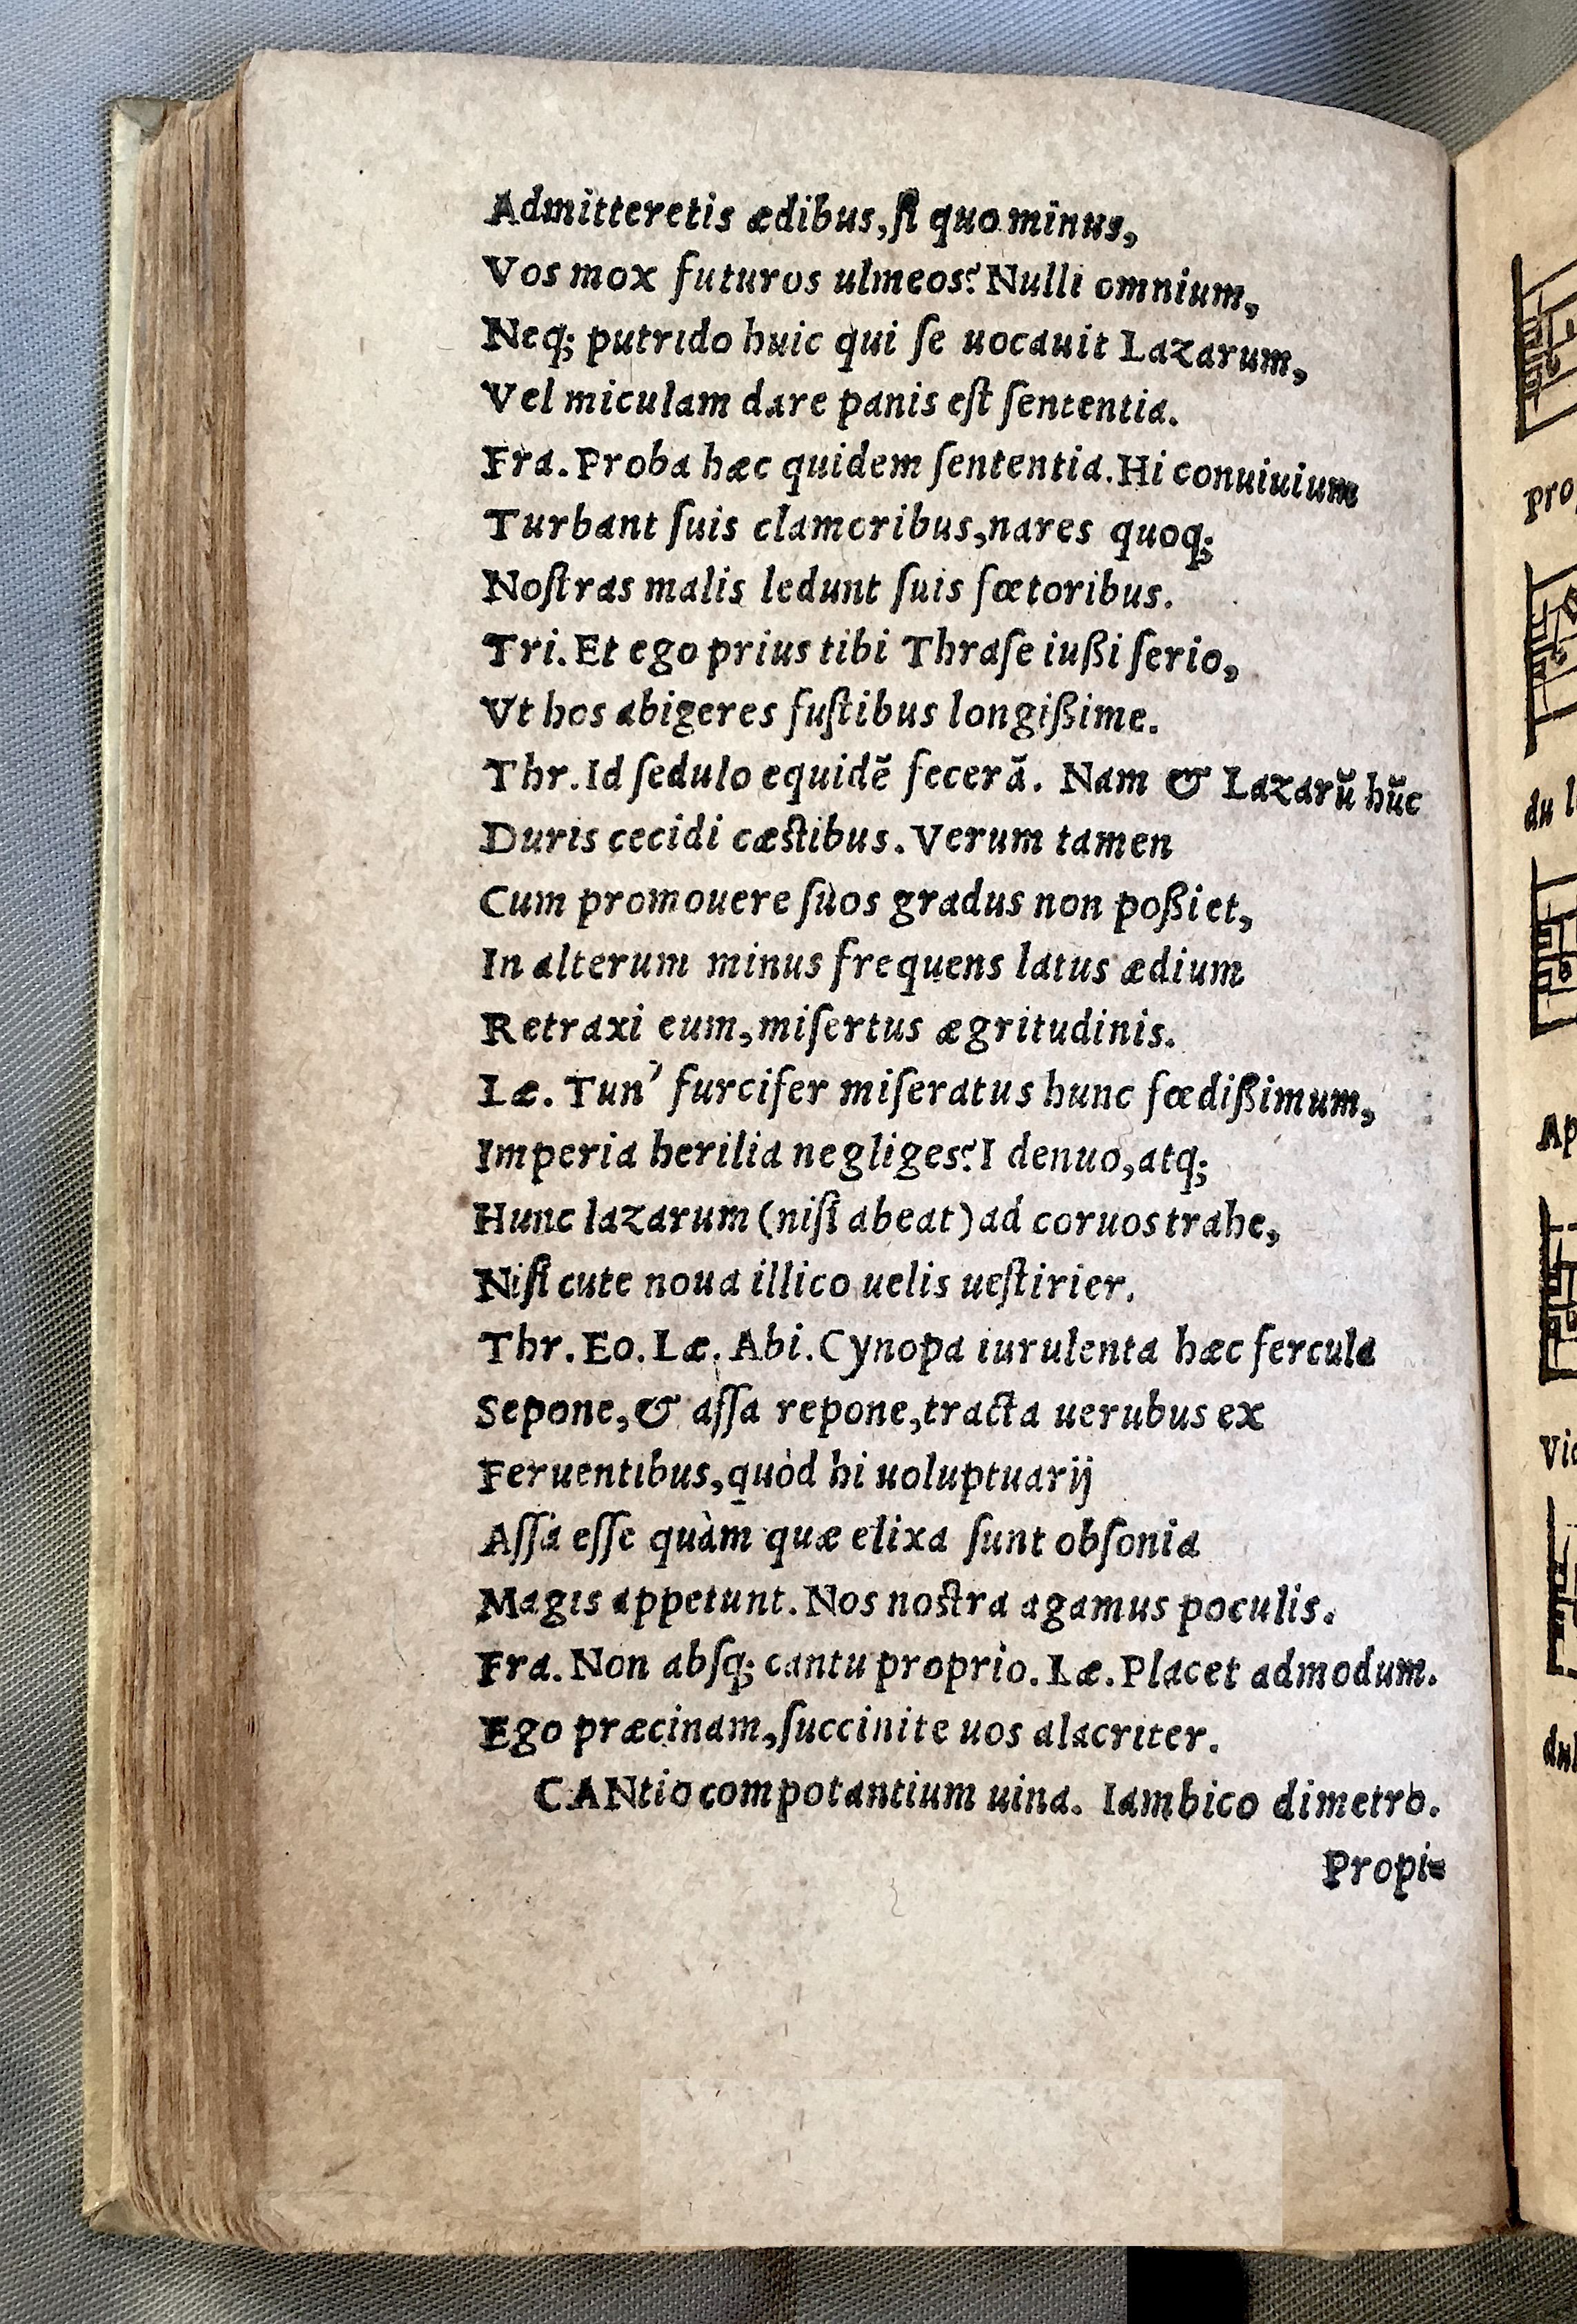 Admitteretis ædibus, ſi quo minus,
Vos mox futuros ulmeos? Nulli omnium,
Neq; putrido huic qui ſe uocauit Lazarum,
Vel miculam dare panis eſt ſententia.
Fra. Proba hæc quidem ſententia. Hi conuiuium
Turbant ſuis clamoribus, nares quoq;
Noſtras malis ledunt ſuis fœtoribus.
Tri. Et ego prius tibi Thraſe iußi ſerio,
Vt hos abigeres fuſtibus longißime.
Thr. Id ſedulo equidē fecerā. Nam & Lazarū hūc
Duris cecidi cæſtibus. Verum tamen
Cum promouere ſuos gradus non poßiet,
In alterum minus frequens latus ædium
Retraxi eum, miſertus ægritudinis.
Læ. Tun' furcifer miſeratus hunc fœdißimum,
Imperia herilia negliges? I denuo, atq;
Hunc lazarum (niſi abeat) ad coruos trahe,
Niſi cute noua illico uelis ueſtirier.
Thr. Eo. Læ. Abi. Cynopa iurulenta hæc fercula
Sepone, & aſſa repone, tracta uerubus ex
Feruentibus, quòd hi uoluptuarij
Aſſa eſſe quàm quæ elixa ſunt obſonia
Magis appetunt. Nos noſtra agamus poculis.
Fra. Non abſq; cantu proprio. Læ. Placet admodum.
Ego præcinam, ſuccinite uos alacriter.
CANtio compotantium uina. Iambico dimetro.
Propi=